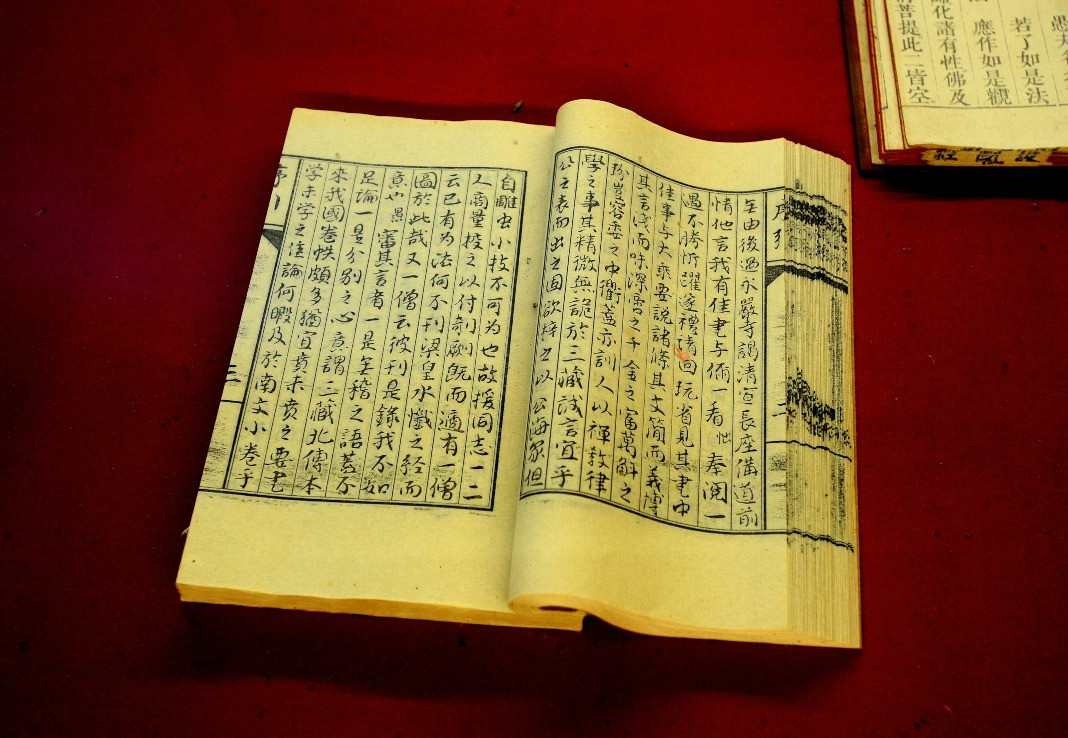 序引
無由後過永嚴寺謁清宣長座備道前
情他言我有佳書与你一看
奉閱一
遇不勝忻躍遂禮請回玩省見其書中
佳事与大乘要說諸條其文簡而義博
其言淺而味深雷之千金之富萬斛之
珍豈容委之中衢蓋亦訓人以禪教律
學之事其精微無詭於三藏誠言宜乎
公之表而出之因欲梓之以公海眾但
自雕虫小技不可为也故援同志一二
人商量投之以付剞劂既而適有一僧
云已有为法何不刊梁皇水懺之經而
圖於此哉又一僧云彼刊是錄我不如
意也愚審其言者一是無稽之語甚不
足論一是分別之心意謂三藏北傳本
來我國卷帙頗多猶宜賁未賁之要書
学未学之佳論何暇及於南文小卷乎
三
愚夫
若了如是法
應作如是觀
化諸有性佛及
菩提此二皆空
經 說